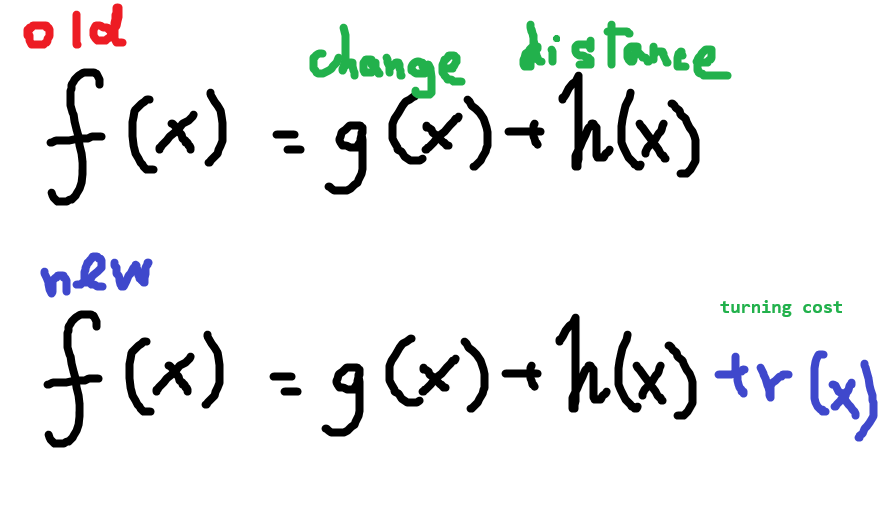 old
change distance
f(x) = g(x) + h(x)
new
turning cost
f(x) = g(x) + h(x) + r(x)